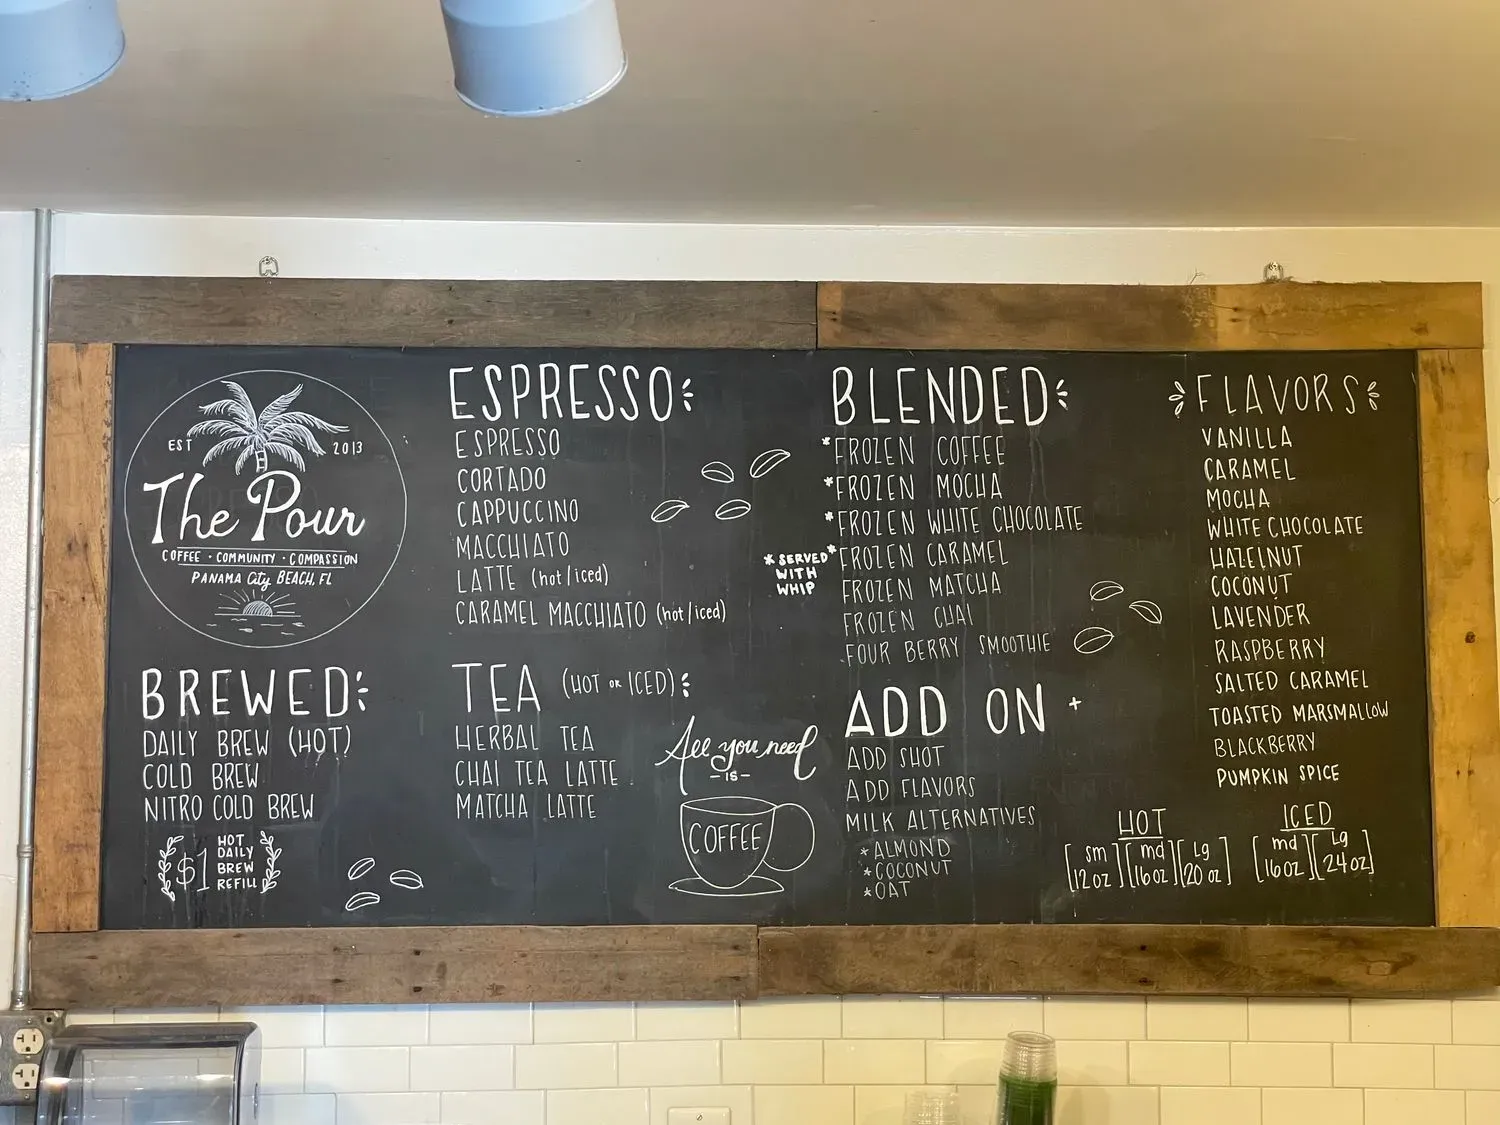 EST 2013
The Pour
COFFEE · COMMUNITY · COMPASSION
PANAMA City BEACH, FL
BREWED
DAILY BREW (HOT)
COLD BREW
NITRO COLD BREW
$1 HOT
DAILY
BREW
REFILL
ESPRESSO
ESPRESSO
CORTADO
CAPPUCCINO
MACCHIATO
LATTE (hot/iced)
CARAMEL MACCHIATO (hot/iced)
TEA (HOT OR ICED)
HERBAL TEA
CHAI TEA LATTE
MATCHA LATTE
All you need
-IS-
COFFEE
BLENDED
*FROZEN COFFEE
*FROZEN MOCHA
*FROZEN WHITE CHOCOLATE
*FROZEN CARAMEL
FROZEN MATCHA
FROZEN CHAI
FOUR BERRY SMOOTHIE
*SERVED
WITH
WHIP
ADD ON +
ADD SHOT
ADD FLAVORS
MILK ALTERNATIVES
*ALMOND
*COCONUT
*OAT
FLAVORS
VANILLA
CARAMEL
MOCHA
WHITE CHOCOLATE
HAZELNUT
COCONUT
LAVENDER
RASPBERRY
SALTED CARAMEL
TOASTED MARSMALLOW
BLACKBERRY
PUMPKIN SPICE
HOT
[sm 12oz] [md 16oz] [Lg 20 oz]
ICED
[md 16oz] [Lg 24oz]